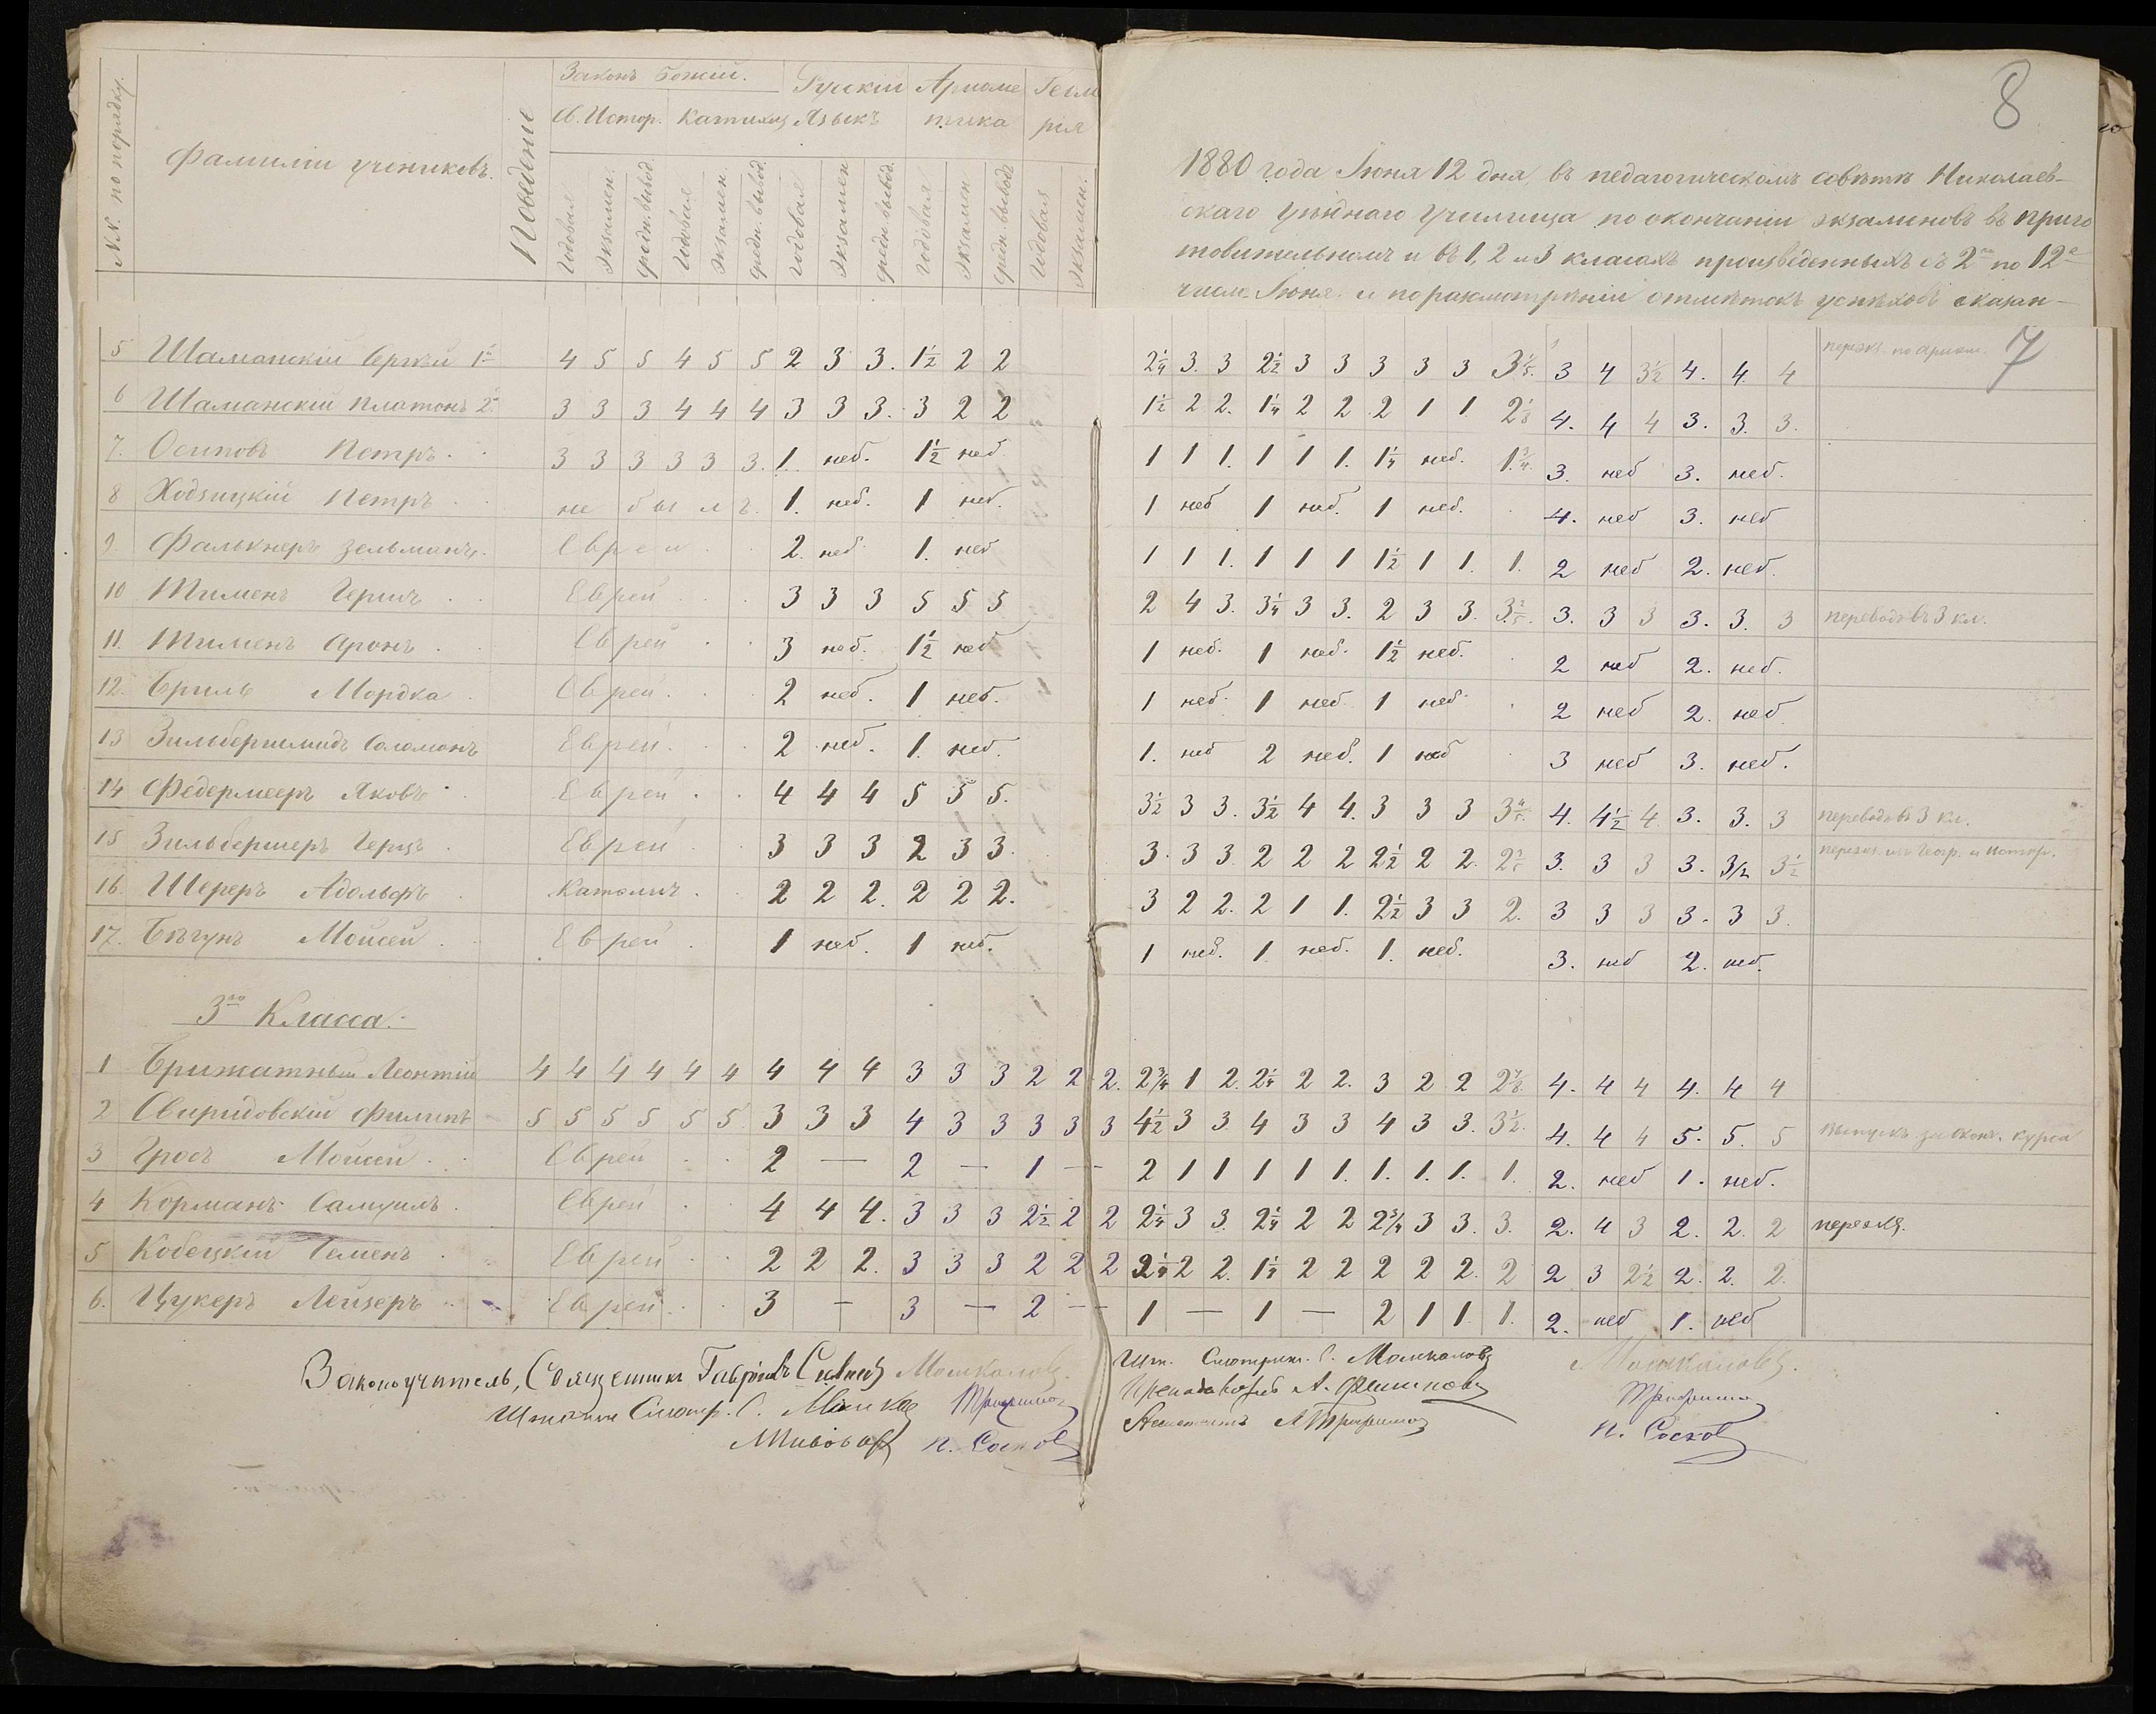 №№ по порядку.
Фамиліи учениковъ.
Поведеніе
Законъ Божій.
Св. Истор. Катихиз
Рускій Языкъ
Ариѳметика
Геометрія
Годовая Экзамен. Средн. вывод. Годовая Экзамен. Средн. вывод. Годовая Экзамен Средн. вывод. Годовая Экзамен Средн. вывод Годовая Экзамен.
8
1880 года Іюня 12 дня, въ педагогическомъ совѣтѣ Николаев-
скаго уѣзднаго Училища по окончаніи экзаменовъ въ приго
товительномъ и въ 1, 2 и 3 класахъ произведенныхъ съ 2го по 12е
число Іюня и по разсмотрѣніи отмѣтокъ успѣховъ оказан-
7
5 Шаманскій Сергѣй 1й 4 5 5 4 5 5 2 3 3. 1½ 2 2 2¼ 3. 3 2½ 3 3 3 3 3 3⅕. 3 4 3½ 4. 4. 4 переэкз. по ариѳм.
6 Шаманскій Платонъ 2й 3 3 3 4 4 4 3 3 3. 3 2 2 1½ 2 2. 1¼ 2 2 2 1 1 2⅛ 4. 4 4 3. 3. 3.
7. Осиповъ Петръ. 3 3 3 3 3 3. 1. неб. 1½ неб. 1 1 1. 1 1 1. 1¼ неб. 3. неб 3. неб.
8 Ходзицкій Петръ не былъ. 1. неб. 1 неб. 1 неб 1 неб. 1 неб. 4. неб 3. неб
9. Фалькнеръ Зельманъ. Еврей 2. неб 1. неб 1 1 1. 1 1 1 1½ 1 1. 1. 2 неб 2. неб.
10 Тименъ Гершъ Еврей 3 3 3 5 5 5 2 4 3. 3¼ 3 3. 2 3 3. 3⅖. 3. 3 3 3. 3. 3 переводъ въ 3 кл.
11. Тименъ Аронъ Еврей 3 неб. 1½ неб 1 неб. 1 неб. 1½ неб. 2 неб 2. неб.
12. Бриль Мордка Еврей. 2 неб. 1 неб. 1 неб. 1 неб. 1 неб 2 неб 2. неб.
13 Зильбершмидъ Соломонъ Еврей. 2 неб. 1. неб. 1. неб 2 неб. 1 неб 3 неб 3. неб.
14 Федермееръ Яковъ Еврей 4 4 4 5 5 5. 3½ 3 3. 3½ 4 4. 3 3 3 3⅘. 4. 4½ 4. 3. 3. 3 переводъ въ 3 кл.
15 Зильбершеръ Герцъ Еврей 3 3 3 2 3 3. 3. 3 3. 2 2 2 2½ 2 2. 3. 3 3 3. 3½ 3½ переэкз. изъ Геогр. и истор.
16. Шереръ Адольфъ Католич. 2 2 2. 2 2 2. 3 2 2. 2 1 1. 2½ 3 3 2. 3 3 3 3. 3 3.
17. Бѣгунъ Мойсей Еврей 1 неб. 1 неб. 1 неб. 1. неб. 1. неб. 3. неб 2. неб.
3го Класса.
1 Брижатный Леонтій 4 4 4 4 4 4 4 4 4 3 3 3 2 2 2. 2¾ 1 2. 2¼ 2 2. 3 2 2 4. 4 4 4. 4 4
2 Свиридовскій Филипъ 5 5 5 5 5 5. 3 3 3 4 3 3 3 3 3 4½ 3 3 4 3 3 4 3 3. 3½. 4. 4 4 5. 5. 5 выпускъ за оконч. курса
3 Гросъ Мойсей Еврей 2 — 2 — 1 — 2 1 1 1 1 1. 1. 1. 1. 1. 2. неб 1. неб.
4 Корманъ Самуилъ. Еврей 4 4 4. 3 3 3 2½ 2 2 2¼ 3 3. 2¼ 2 2 2¾ 3 3. 3. 2. 4 3 2. 2. 2 переэкз.
5 Кобецкій Семенъ Еврей 2 2 2. 3 3 3 2 2 2 2¼ 2 2. 1½ 2 2 2 2 2. 2 2 3 2½ 2. 2. 2.
6. Цукеръ Лейзеръ Еврей 3 — 3 — 2 — 1 — 1 — 2 1 1. 1. 2. неб 1. неб
Законоучитель, Священникъ Гавріилъ
Штатн. Смотр. С.
П. Сосков
Шт. Смотрит. С. Машкаловъ
Преподаватель А. Филиповъ
П. Сосков